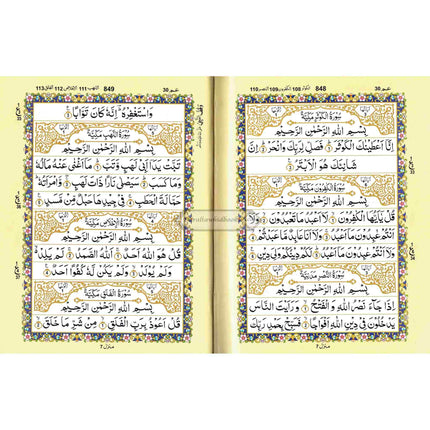 عم 30
848
الكوثر 108 الكٰفرون 109 النصر 110
سُوْرَةُ الْكَوْثَرِ مَكِّيَّةٌ
بِسْمِ اللّٰهِ الرَّحْمٰنِ الرَّحِيْمِ
اِنَّاۤ اَعْطَيْنٰكَ الْكَوْثَرَ فَصَلِّ لِرَبِّكَ وَانْحَرْ اِنَّ
شَانِئَكَ هُوَ الْاَبْتَرُ
سُوْرَةُ الْكٰفِرُوْنَ مَكِّيَّةٌ
بِسْمِ اللّٰهِ الرَّحْمٰنِ الرَّحِيْمِ
قُلْ يٰۤاَيُّهَا الْكٰفِرُوْنَ لَاۤ اَعْبُدُ مَا تَعْبُدُوْنَ وَلَاۤ
اَنْتُمْ عٰبِدُوْنَ مَاۤ اَعْبُدُ وَلَاۤ اَنَا عَابِدٌ مَّا عَبَدْتُّمْ
وَلَاۤ اَنْتُمْ عٰبِدُوْنَ مَاۤ اَعْبُدُ
سُوْرَةُ النَّصْرِ مَدَنِيَّةٌ
بِسْمِ اللّٰهِ الرَّحْمٰنِ الرَّحِيْمِ
اِذَا جَآءَ نَصْرُ اللّٰهِ وَالْفَتْحُ وَرَاَيْتَ النَّاسَ
يَدْخُلُوْنَ فِيْ دِيْنِ اللّٰهِ اَفْوَاجًا فَسَبِّحْ بِحَمْدِ رَبِّكَ
منزل 7
عم 30
849
اللهب 111 الاخلاص 112 الفلق 113
وَاسْتَغْفِرْهُ اِنَّهٗ كَانَ تَوَّابًا
سُوْرَةُ اللَّهَبِ مَكِّيَّةٌ
بِسْمِ اللّٰهِ الرَّحْمٰنِ الرَّحِيْمِ
تَبَّتْ يَدَاۤ اَبِيْ لَهَبٍ وَّتَبَّ مَاۤ اَغْنٰى عَنْهُ مَالُهٗ
وَمَا كَسَبَ سَيَصْلٰى نَارًا ذَاتَ لَهَبٍ وَّامْرَاَتُهٗ
حَمَّالَةَ الْحَطَبِ فِيْ جِيْدِهَا حَبْلٌ مِّنْ مَّسَدٍ
سُوْرَةُ الْاِخْلَاصِ مَكِّيَّةٌ
بِسْمِ اللّٰهِ الرَّحْمٰنِ الرَّحِيْمِ
قُلْ هُوَ اللّٰهُ اَحَدٌ اَللّٰهُ الصَّمَدُ لَمْ يَلِدْ
وَلَمْ يُوْلَدْ وَلَمْ يَكُنْ لَّهٗ كُفُوًا اَحَدٌ
سُوْرَةُ الْفَلَقِ مَكِّيَّةٌ
بِسْمِ اللّٰهِ الرَّحْمٰنِ الرَّحِيْمِ
قُلْ اَعُوْذُ بِرَبِّ الْفَلَقِ مِنْ شَرِّ مَا خَلَقَ
منزل 7